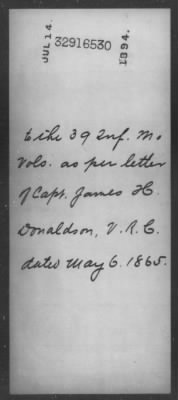 JUL 14.
32916530
1894.
E the 39 Inf. Mo
Vols. as per letter
of Capt. James H.
Donaldson, V. R. C.
dated May 6. 1865.